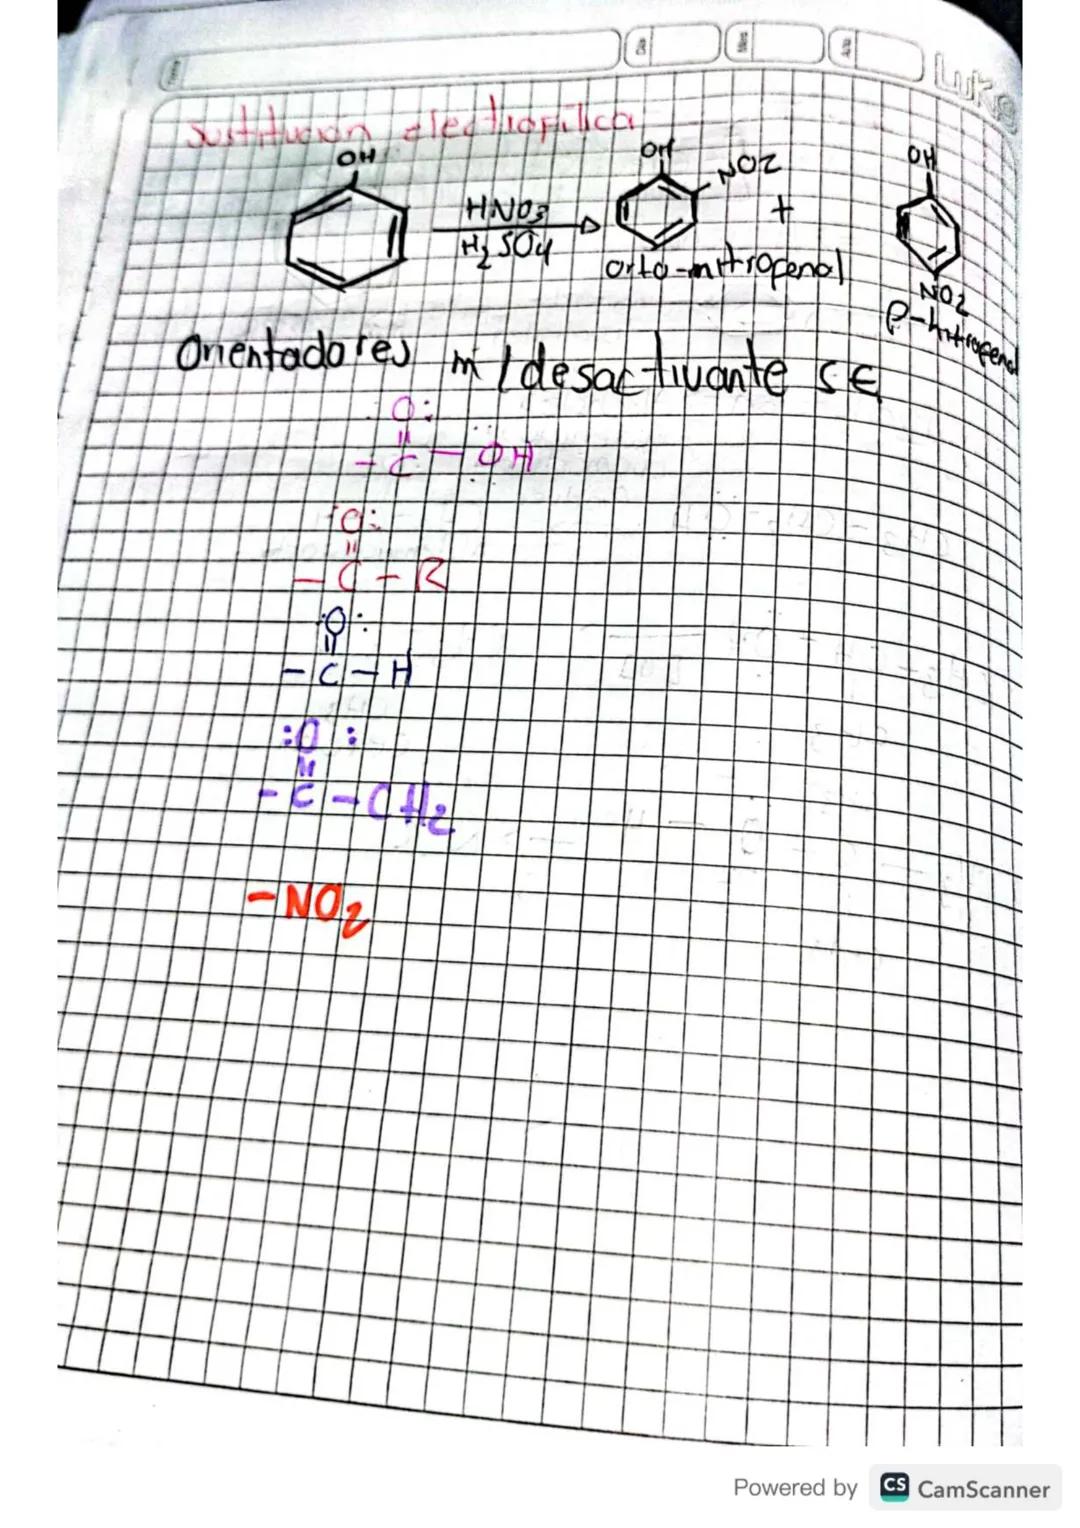 Sustitución electrofílica
OH
HNO3
H2SO4
OH
NO2
+
orto-nitrofenol
OH
NO2
p-nitrofenol
Orientadores m/desactivante SE
:O:
||
-C-OH
:O:
||
-C-R
:O:
||
-C-H
:O:
||
-C-CH2
-NO2
Powered by CS CamScanner